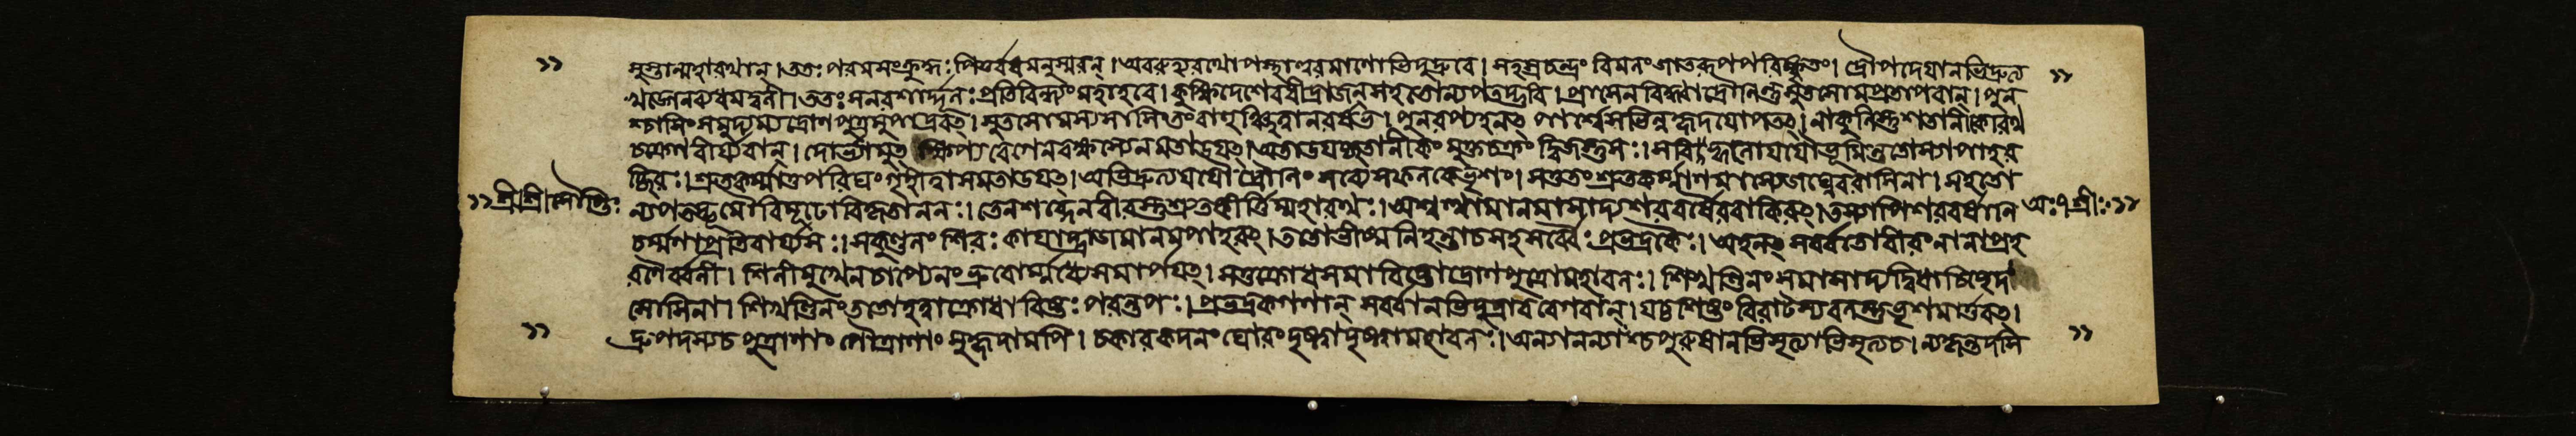 সুপ্তান্মহারথান্। ততঃ পরমসংক্রুদ্ধঃ পিতুর্ব্বধমনুস্মরন্। অবরুহ্য রথোপস্থাত্ত্বরমাণোভিদুদ্রুবে। সহস্রচন্দ্রং বিমলং জাতরূপপরিষ্কৃতং। দ্রৌপদেয়ানভিদ্রুত্য
খড়্গেন ব্যধমদ্বলী। ততঃ সনরশার্দ্দূলঃ প্রতিবিন্ধ্যং মহাহবে। কুক্ষিদেশেবধীদ্রাজন্ সহতোন্যপতদ্ভুবি। প্রাসেন বিদ্ধা দ্রৌণিন্তু সুতসোমপ্রতাপবান্। পুন
শ্চাসিং সমুদ্যম্য দ্রোণপুত্রমুপাদ্রবৎ। সুতসোমস্য সাসিন্তং বাহুঞ্ছিত্ত্বা নরর্ষভ। পুনরপ্যহনৎ পার্শ্বে সভিন্নহৃদয়োপতৎ। নাকুলিস্তু শতানীকোরথ
চক্রেণ বীর্য্যবান্। দোর্ভ্যামুৎক্ষিপ্য বেগেন বক্ষস্যেনমতাড়য়ৎ। অতাড়য়চ্ছতানীকং মুক্তচক্রং দ্বিজস্তু সঃ। সবিহ্বলোযযৌ ভূমিং ততোস্যাপাহর
চ্ছিরঃ। শ্রুতকর্ম্মাতুপরিঘং গৃহীত্বা সমতাড়য়ৎ। অভিদ্রুত্য যযৌ দ্রৌণিং সব্যে সফলকে ভৃশং। সতুতং শ্রুতকর্ম্মাণমাস্যে জঘ্নে বরাসিনা। সহতো
»শ্রীশ্রীসৌপ্তিঃ ন্যপতদ্ভূমৌ বিমূঢ়োবিকৃতাননঃ। তেন শব্দেন বীরস্তু শ্রুতকীর্ত্তির্ম্মহারথঃ। অশ্বত্থামানমাসাদ্য শরবর্ষৈরবাকিরৎ। তস্যাপি শরবর্ষাণি অঃ৭ শ্রীঃ»
চর্ম্মণা প্রতিবার্য্য সঃ। সকুণ্ডলং শিরঃ কায়াদ্ভ্রাজমানমপাহরৎ। ততোভীষ্মনিহন্তা চ সহ সর্ব্বৈঃ প্রভদ্রকৈঃ। অহনৎ সর্ব্বতোবীরং নানাপ্রহ
রণৈর্ব্বলী। শিলীমুখেন চাপ্যেনং ভ্রুবোর্ম্মধ্যে সমার্পয়ৎ। সতু ক্রোধসমাবিষ্টোদ্রোণপুত্রোমহাবলঃ। শিখণ্ডিনং সমাসাদ্য দ্বিধা চিচ্ছেদ
সোসিনা। শিখণ্ডিনং ততোহত্বা ক্রোধাবিষ্টঃ পরন্তপঃ। প্রভদ্রকগণান্ সর্ব্বানভিদুদ্রাব বেগবান্। যচ্চ শিষ্টং বিরাটস্য বলন্তু ভৃশমার্দ্দবৎ।
দ্রুপদস্য চ পুত্রাণাং পৌত্রাণাং সুহৃদামপি। চকার কদনং ঘোরং দৃষ্ট্বা দৃষ্ট্বা মহাবলঃ। অন্যানন্যাংশ্চ পুরুষানভিসৃত্যাভিসৃত্য চ। ন্যকৃন্তদসি